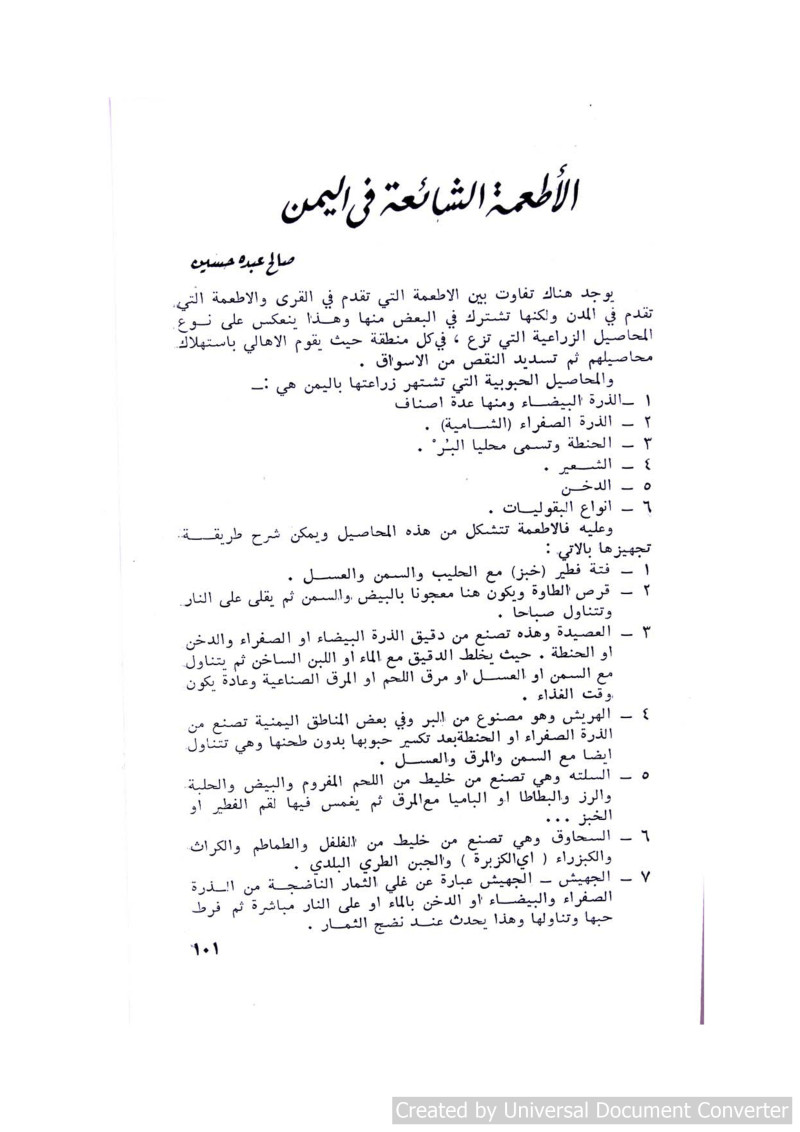 الأطعمة الشائعة في اليمن
صالح عبده حسين
يوجد هناك تفاوت بين الاطعمة التي تقدم في القرى والاطعمة التي
تقدم في المدن ولكنها تشترك في البعض منها وهـذا ينعكس على نـوع
المحاصيل الزراعية التي تزع ، في كل منطقة حيث يقوم الاهالي باستهلاك
محاصيلهم ثم تسديد النقص من الاسواق .
والمحاصيل الحبوبية التي تشتهر زراعتها باليمن هي :ـ
١ ــ الذرة البيضـاء ومنها عدة اصناف
٢ ــ الذرة الصفراء (الشـامية) .
٣ ــ الحنطة وتسمى محليا البُرْ .
٤ ــ الشـعير .
٥ ــ الدخـن
٦ ــ انواع البقوليـات .
وعليه فالاطعمة تتشكل من هذه المحاصيل ويمكن شرح طريقـــة
تجهيزها بالاتي :
١ ــ فتة فطير (خبز) مع الحليب والسمن والعسـل .
٢ ــ قرص الطاوة ويكون هنا معجونا بالبيض والسمن ثم يقلى على النار
وتتناول صباحا .
٣ ــ العصيدة وهذه تصنع من دقيق الذرة البيضاء او الصفراء والدخن
او الحنطة . حيث يخلط الدقيق مع الماء او اللبن الساخن ثم يتناول
مع السمن او العسـل او مرق اللحم او المرق الصناعية وعادة يكون
وقت الغذاء .
٤ ــ الهريش وهو مصنوع من البر وفي بعض المناطق اليمنية تصنع من
الذرة الصفراء او الحنطة بعد تكسير حبوبها بدون طحنها وهي تتناول
ايضا مع السمن والمرق والعسـل .
٥ ــ السلته وهي تصنع من خليط من اللحم المفروم والبيض والحلبة
والرز والبطاطا او الباميا مع المرق ثم يغمس فيها لقم الفطير او
الخبز ...
٦ ــ السحاوق وهي تصنع من خليط من الفلفل والطماطم والكراث
والكبزراء ( اي الكزبرة ) والجبن الطري البلدي .
٧ ــ الجهيش ــ الجهيش عبارة عن غلي الثمار الناضجـة من الـذرة
الصفراء والبيضـاء او الدخن بالماء او على النار مباشرة ثم فرط
حبها وتناولها وهذا يحدث عنـد نضج الثمـار .
١٠١
Created by Universal Document Converter